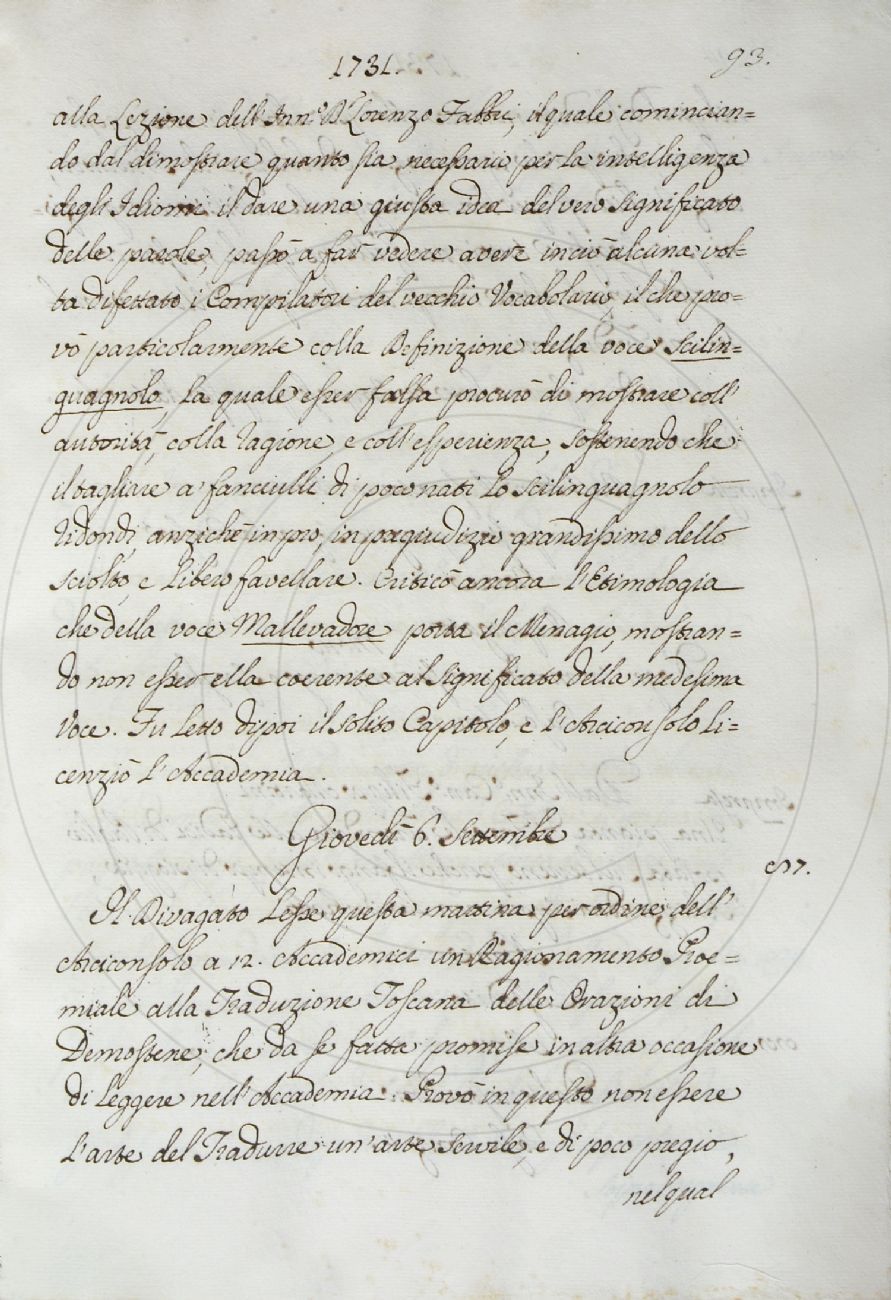 1731.
93.
alla Lezione dell'Inn.º D.r Lorenzo Fabbri, il quale comincian=
do dal dimostrare quanto sia necessario per la intelligenza
degl'Idiomi il dare una giusta idea del vero significato
delle parole, passò a far vedere avere in ciò alcuna vol=
ta difettato i Compilatori del vecchio Vocabolario, il che pro=
vò particolarmente colla Definizione della voce Scilin=
guagnolo, la quale esser falsa procurò di mostrare coll'
autorità, colla ragione, e coll'esperienza, sostenendo che
il tagliare a' fanciulli di poco nati lo scilinguagnolo
ridondi, anzichè in pro, in pregiudizio grandissimo dello
sciolto, e libero favellare. Criticò ancora l'Etimologia
che della voce Mallevadore porta il Menagio, mostran=
do non esser ella coerente al significato della medesima
voce. Fu letto dipoi il solito Capitolo, e l'Arciconsolo li=
cenziò l'Accademia.
Giovedì 6. Settembre
S7.
Il Divagato lesse questa mattina per ordine dell'
Arciconsolo a 12. Accademici un Ragionamento Proe=
miale alla Traduzione Toscana delle Orazioni di
Demostene, che da se fatta promise in altra occasione
di leggere nell'Accademia. Provò in questo non essere
l'arte del Tradurre un'arte servile, e di poco pregio,
nel qual